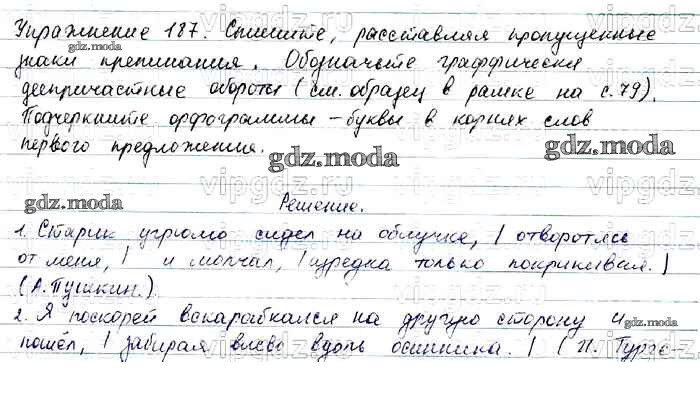 Упражнение 187. Спишите, расставляя пропущенные
gdz.moda
знаки препинания. Обозначьте графически
деепричастные обороты (см. образец в рамке на с. 79).
Подчеркните орфограммы – буквы в корнях слов
первого предложения.
gdz.moda gdz.moda
Решение.
gdz.moda
1. Старик угрюмо сидел на облучке, | отворотясь
от меня, | и молчал, | изредка только покрикивая. |
(А. Пушкин.)
2. Я поскорей вскарабкался на другую сторону и
gdz.moda
пошёл, | забирая влево вдоль осинника. | (И. Турге-
vipgdz.ru